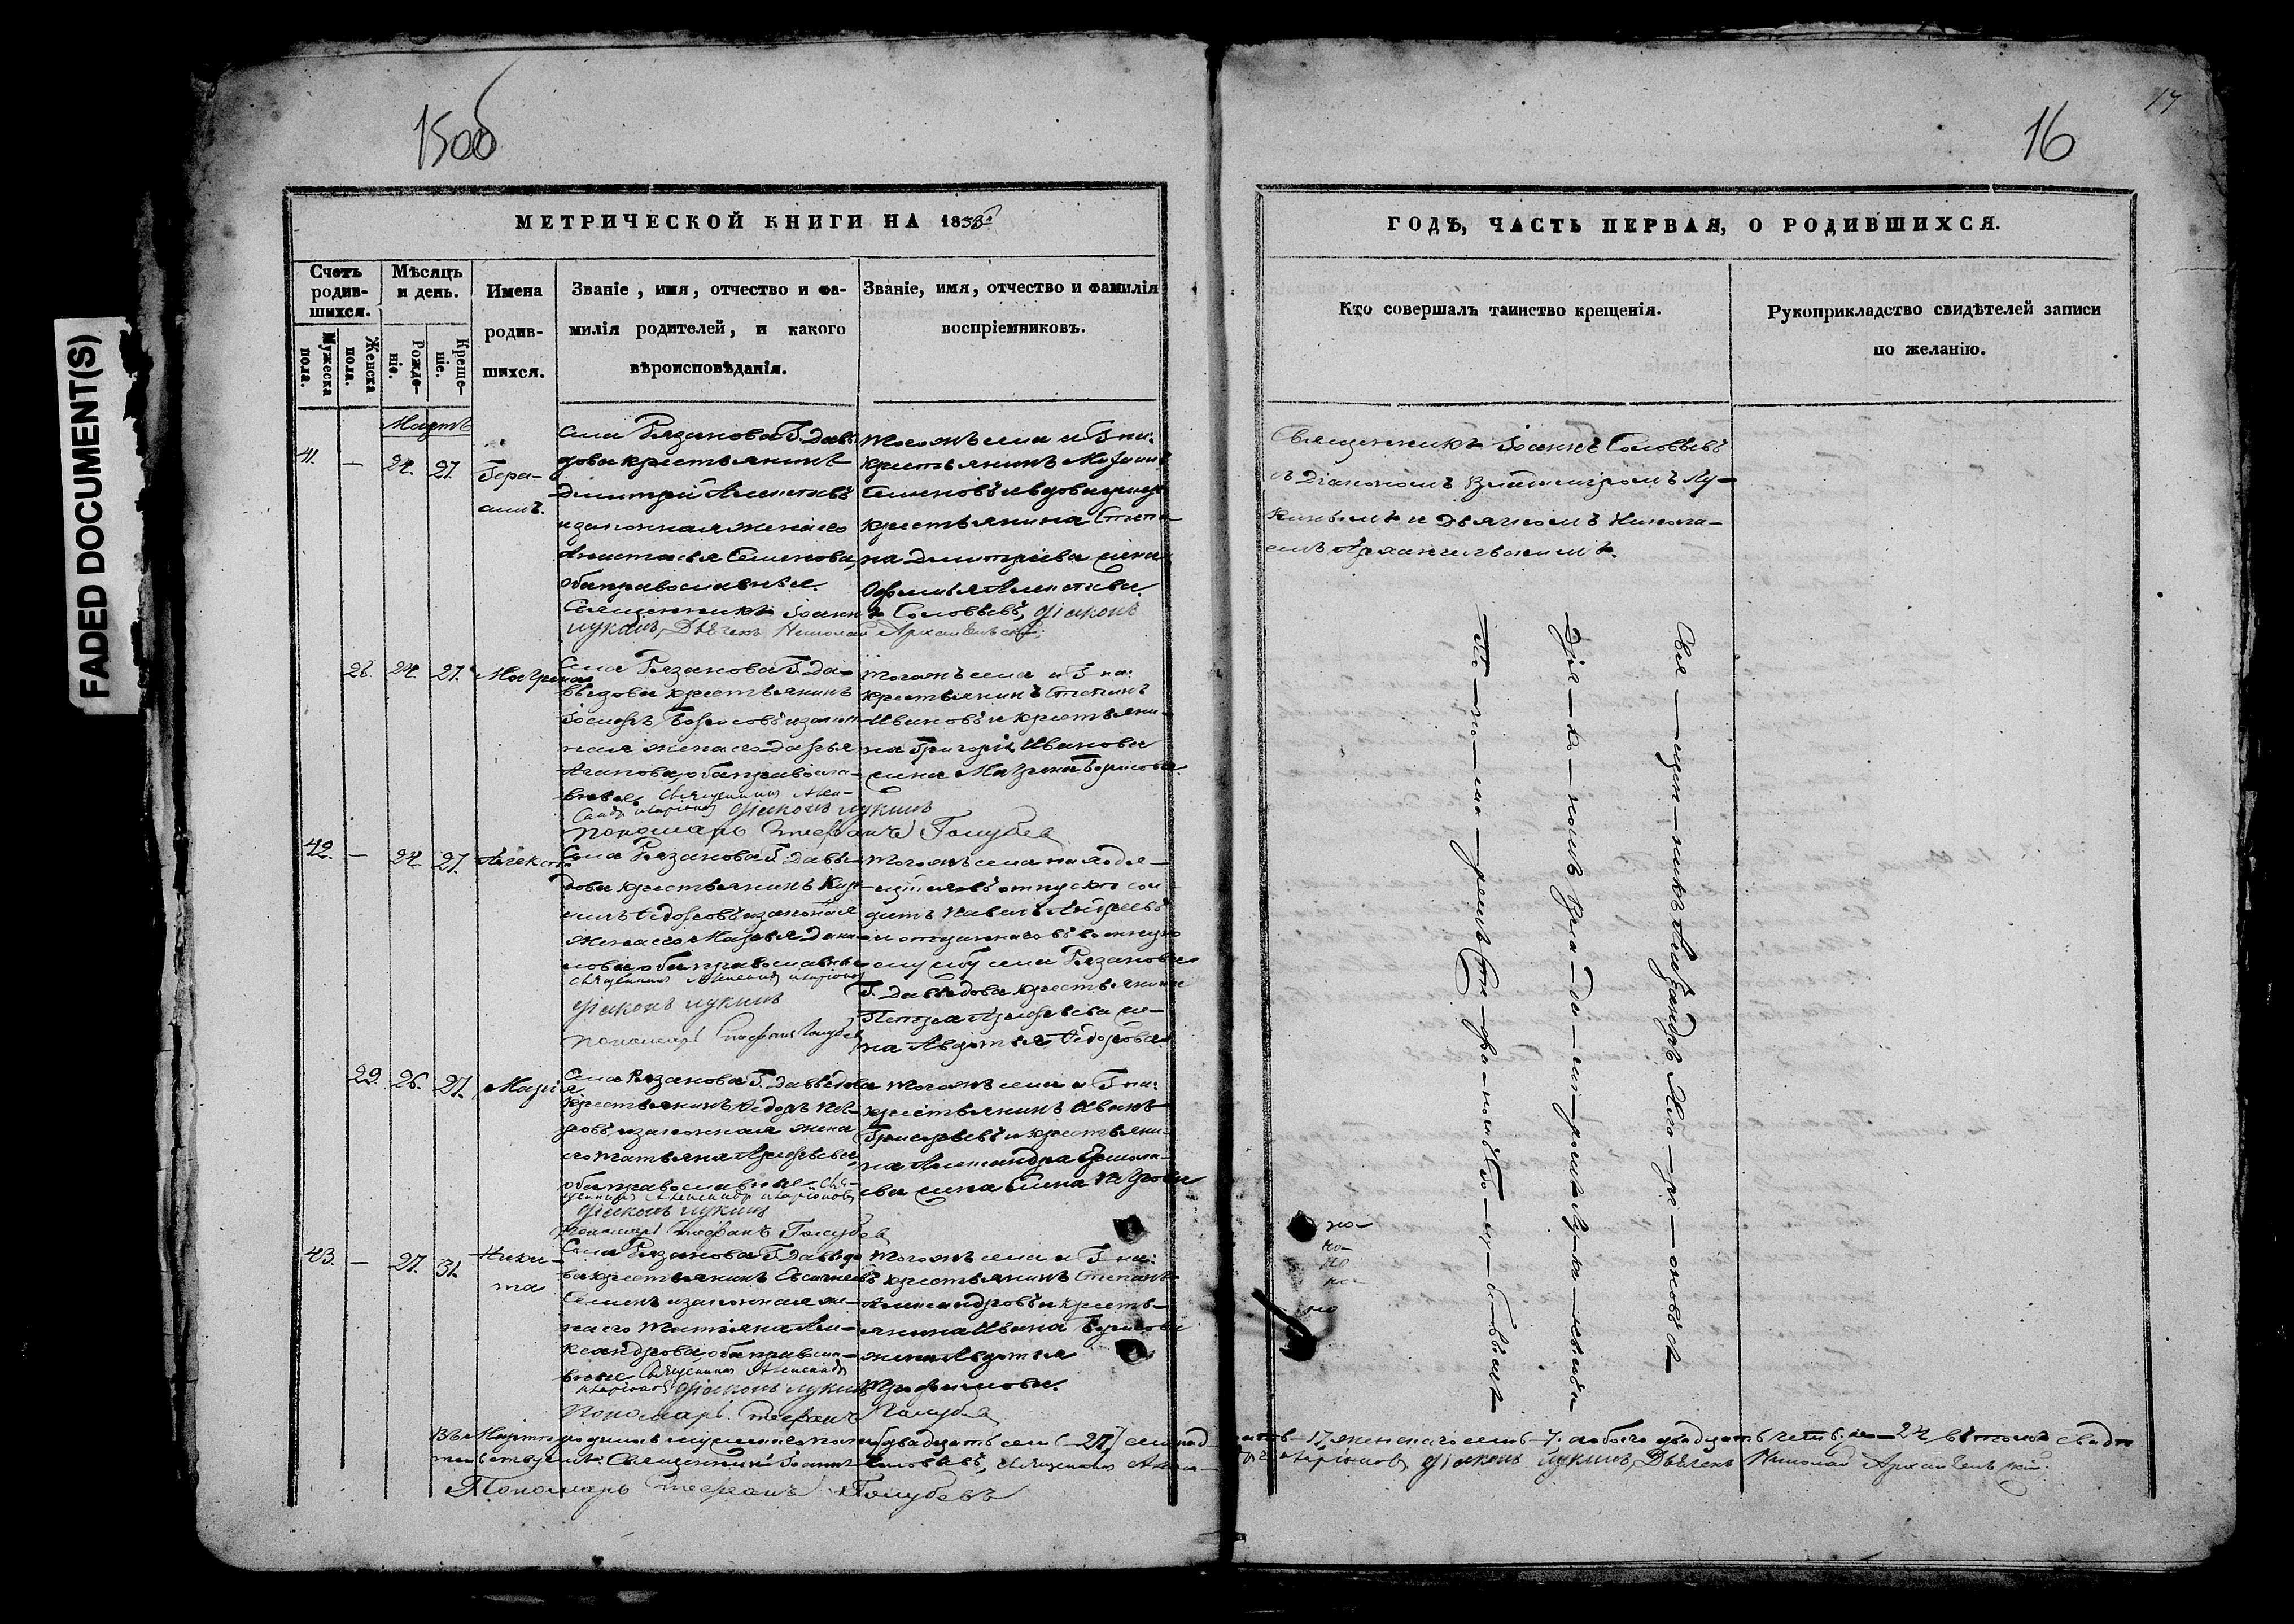 FADED DOCUMENT(S)
15об
16
17
МЕТРИЧЕСКОЙ КНИГИ НА 185
ГОДЪ, ЧАСТЬ ПЕРВАЯ, О РОДИВШИХСЯ.
Счетъ родив-шихся.
Мужеска пола.
Женска пола.
Мѣсяцъ и день.
Рожде-ніе.
Креще-ніе.
Имена
родив-
шихся.
Званіе, имя, отчество и фа-
милія родителей, и какого
вѣроисповѣданія.
Званіе, имя, отчество и фамилія
воспріемниковъ.
Кто совершалъ таинство крещенія.
Рукоприкладство свидѣтелей записи
по желанію.
Мартъ
41. — 24. 27. Гера-
симъ.
Села Рязанова Г. Давы
дова крестьянинъ
Димитрій Алексѣевъ
и законная жена его
Анастасья Семенова,
оба православные.
Священникъ Іоаннъ Соловьевъ, Діаконъ
Лукинъ, Дьячекъ Николай Архангельскій.
Тогожъ села и Г-на
крестьянинъ
Семеновъ и
крестьянина Степа-
на Димитріева жена
Алексѣева.
Священникъ Іоаннъ Соловьевъ
съ Діакономъ Владиміромъ Лу-
кинымъ и Дьячкомъ Никола-
емъ Архангельскимъ.
28. 24. 27. Матрена
Села Рязанова Г. Да-
выдова крестьянинъ
Іосифъ Борисовъ и закон-
ная жена его Дарья
Агапова, оба правосла-
вные. Священникъ Алек-
сандръ Иларіоновъ Діаконъ Лукинъ
Пономарь Стефанъ Голубевъ
Тогожъ села и Г-на
крестьянинъ Степанъ
Ивановъ и крестьяни-
на Григорія Иванова
жена Матрена Борисова.
42. — 24. 27. Алексѣй
Села Рязанова Г. Давы-
дова крестьянинъ
Ѳедоровъ и законная
жена его Марья Дани-
лова, оба православные
Священникъ Александръ Иларіоновъ
Діаконъ Лукинъ
Пономарь Стефанъ Голубевъ
Тогожъ села находя-
щійся въ отпуску сол-
датъ Павелъ Андреевъ
и отданнаго въ военную
службу села Рязанова
Г. Давыдова крестьянина
Петра Арефьева же-
на Авдотья Ѳедорова.
29. 26. 27. Марія
Села Рязанова Г. Давыдова
крестьянинъ Ѳедоръ Пет-
ровъ и законная жена
его Татьяна Арефьева,
оба православные. Свя-
щенникъ Александръ Иларіоновъ
Діаконъ Лукинъ
Пономарь Стефанъ Голубевъ
Тогожъ села и Г-на
крестьянинъ Иванъ
Григорьевъ и крестьяни-
на Александра Ермола-
ева жена Елена Петрова
43. — 27. 31. Ники-
та
Села Рязанова Г. Давыдо
ва крестьянинъ
Семенъ и законная же-
на его Татіана Але-
ксандрова, оба правосла-
вные Священникъ Александръ
Иларіоновъ Діаконъ Лукинъ
Пономарь Стефанъ Голубевъ
Тогожъ села и Г-на
крестьянинъ Степанъ
Александровъ и кресть-
янина Ивана Борисова
жена Авдотья
Трофимова.
Свя — щен — никъ Александръ Ила — рі — оновъ съ
Діа — ко — номъ Вла — ди — мі — ромъ Лу — ки — нымъ
По — но — ма — ремъ Сте — фа — номъ Го — лу — бе — вымъ
женскаго семь — 7. а обоего двадцать четыре — 24 въ томъ свидѣ
тельствуемъ: Священникъ Іоаннъ Соловьевъ, Священникъ Алексан
дръ Иларіоновъ, Діаконъ Лукинъ, Дьячекъ Николай Архангельскій.
Пономарь Стефанъ Голубевъ